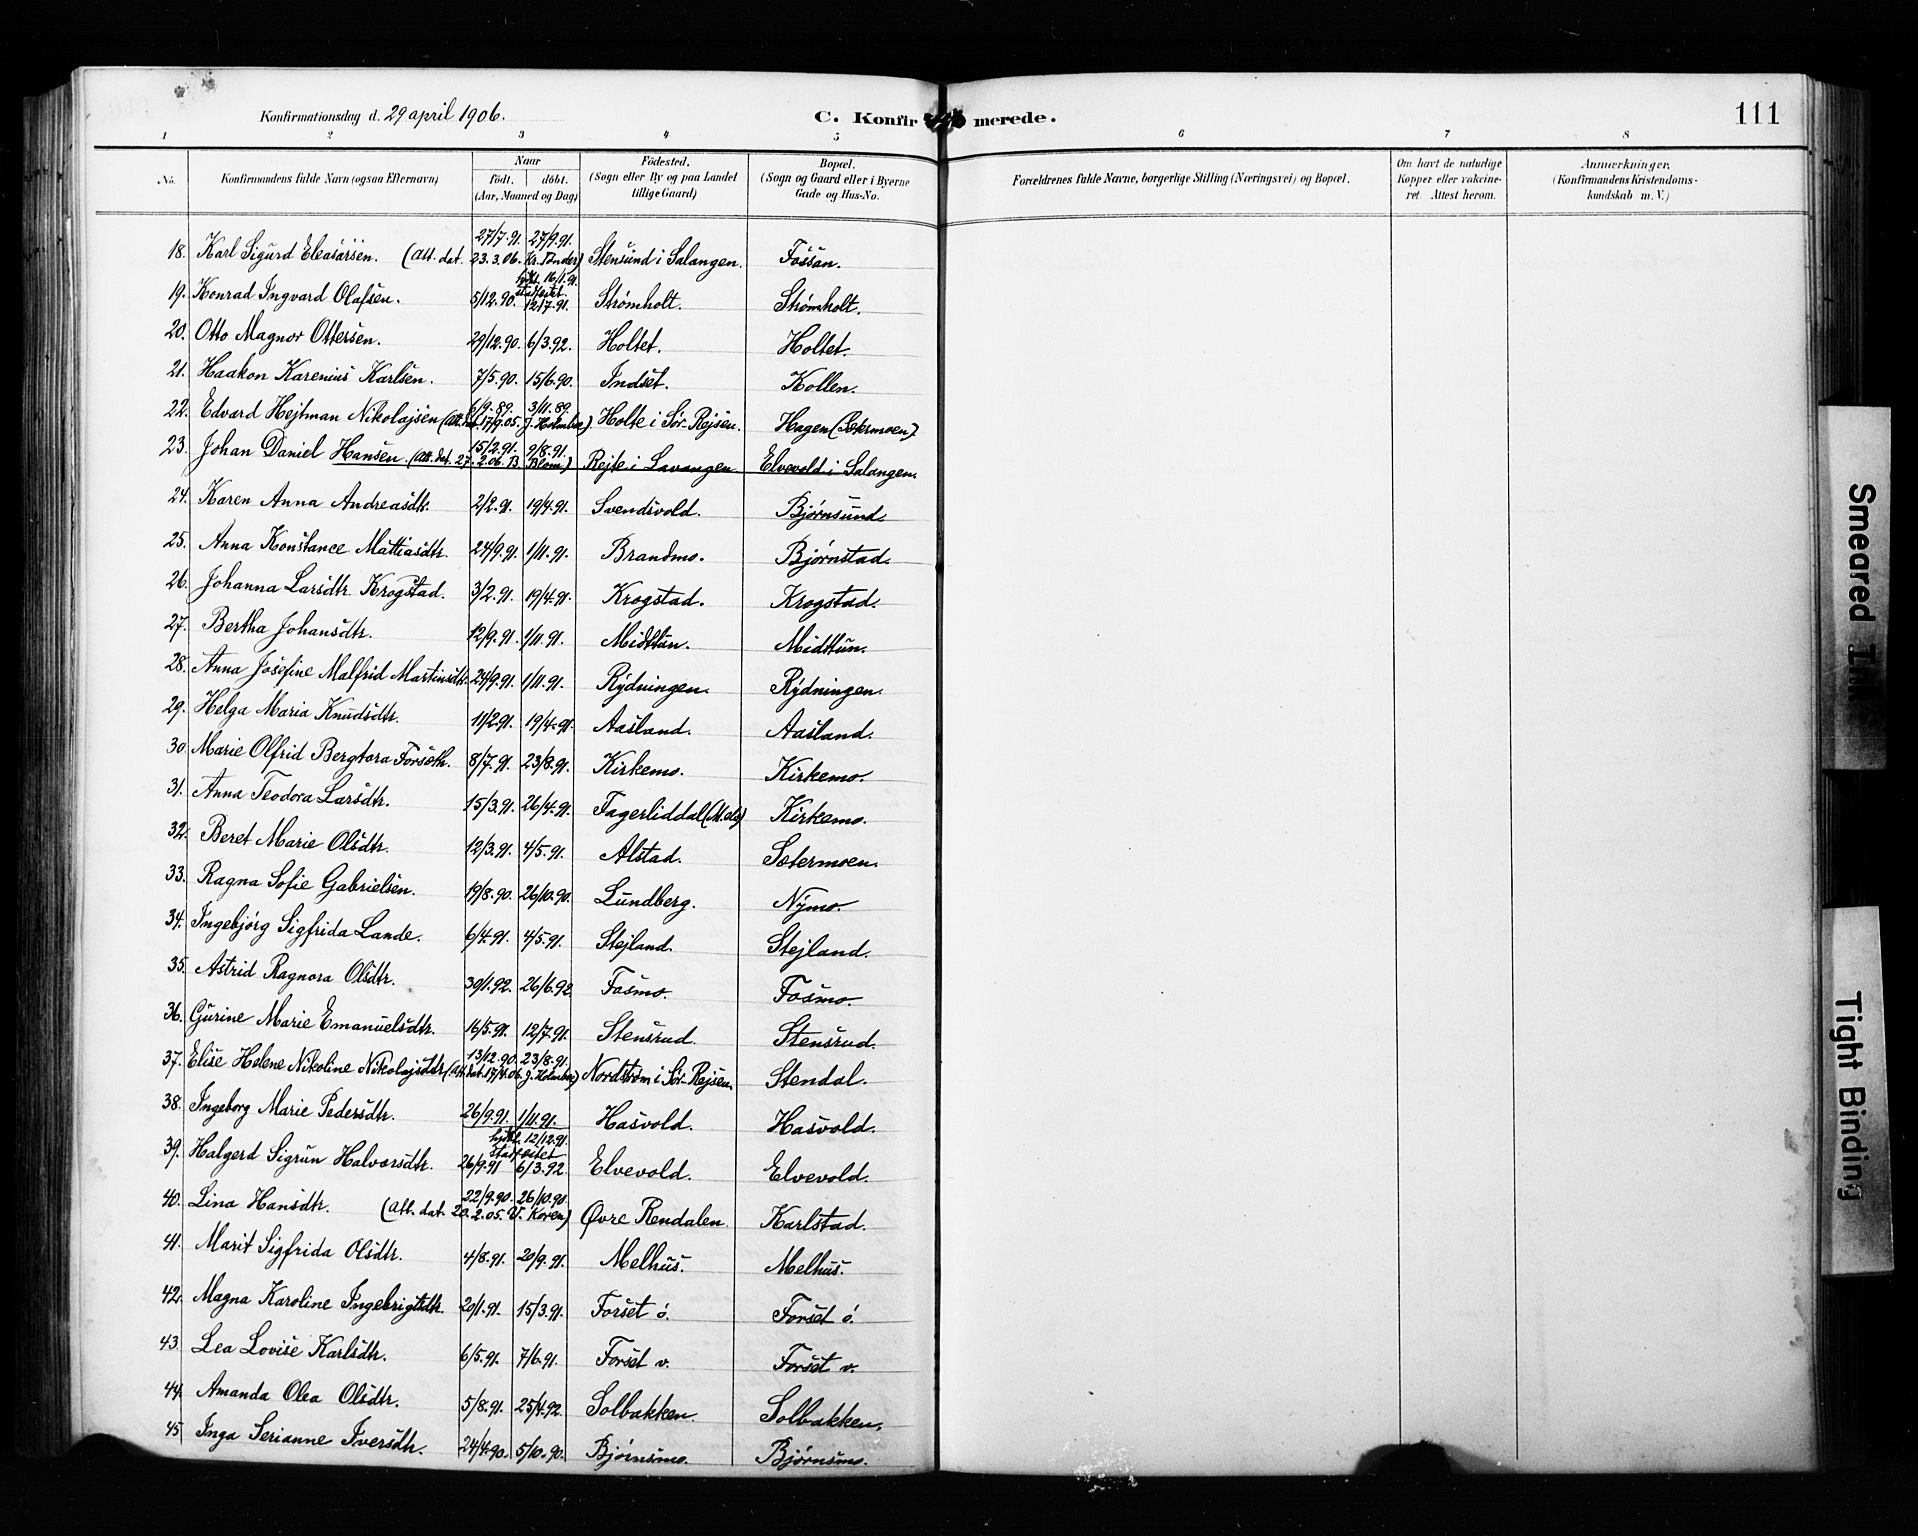 Konfirmationsdag d. 29 april 1906.
C. Konfirmerede.
111
1 2 3 4 5 6 7 8
No.
Konfirmandens fulde Navn (ogsaa Efternavn)
Naar
födt. döbt.
(Aar, Maaned og Dag)
Födested.
(Sogn eller By og paa Landet
tillige Gaard)
Bopæl.
(Sogn og Gaard eller i Byerne
Gade og Hus-No.
Forældrenes fulde Navne, borgerlige Stilling (Næringsvei) og Bopæl.
Om havt de naturlige
Kopper eller vakcine-
ret. Attest herom.
Anmærkninger.
(Konfirmandens Kristendoms-
kundskab m. V.)
27/7.91. 27/9.91.
18. Karl Sigurd Eleasarsen. (Att. dat. 23.3.06. Kr. Tander) Stensund i Salangen. Fossan.
hjdt. 16/1.91.
stadfestet
19. Konrad Ingvard Olafsen. 5/12.90. 12/7.91. Strømholt. Strømholt.
20. Otto Magnor Ottersen. 29/12.90. 6/3.92. Holtet. Holtet.
21. Haakon Karenius Karlsen. 7/5.90. 15/6.90. Indset. Kollen.
6/9.89. 3/11.89.
22. Edvard Hejtman Nikolajsen (Att. dat. 17/9.05. J. Holmboe) Holte i Sør-Rejsen. Hagen (Sætermoen).
15/2.91. 9/8.91.
23. Johan Daniel Hansen. (Att. dat. 27.2.06. B Blom) Rejte i Lavangen Elvevold i Salangen.
24. Karen Anna Andreasdtr. 2/2.91. 19/4.91. Svendsvold. Bjørnsund.
25. Anna Konstance Mattiasdtr. 24/9.91. 1/11.91. Brandmo. Bjørnstad.
26. Johanna Larsdtr. Krogstad. 3/2.91. 19/4.91. Krogstad. Krogstad.
27. Bertha Johansdtr. 12/9.91. 1/11.91. Midttun. Midttun.
28. Anna Josefine Malfrid Martinsdtr. 24/9.91. 1/11.91. Rydningen. Rydningen.
29. Helga Maria Knudsdtr. 11/2.91. 19/4.91. Aasland. Aasland.
30. Marie Olfrid Bergtora Forseth. 8/7.91. 23/8.91. Kirkemo. Kirkemo.
31. Anna Teodora Larsdtr. 15/3.91. 26/4.91. Fagerliddal (M.elv) Kirkemo.
32. Beret Marie Olsdtr. 12/3.91. 4/5.91. Alstad. Sætermoen.
33. Ragna Sofie Gabrielsen. 19/8.90. 26/10.90. Lundberg. Nymo.
34. Ingebjørg Sigfrida Lande. 6/4.91. 4/5.91. Stejland. Stejland.
35. Astrid Ragnora Olsdtr. 30/1.92. 26/6.92. Fosmo. Fosmo.
36. Gurine Marie Emanuelsdtr. 16/5.91. 12/7.91. Stensrud. Stensrud.
13/12.90. 23/8.91.
37. Elise Helene Nikoline Nikolajsdtr (Att. dat. 17/4.06. J. Holmboe) Nordstrøm i Sør-Rejsen. Stendal.
38. Ingeborg Marie Pedersdtr. 26/9.91. 1/11.91. Hasvold. Hasvold.
hjdt. 12/12.91.
stadfæstet
39. Halgerd Sigrun Halvorsdtr. 26/9.91 6/3.92. Elvevold. Elvevold.
22/9.90. 26/10.90.
40. Lina Hansdtr. (Att. dat. 20.2.05. U. Koren) Øvre Rendalen Karlstad.
41. Marit Sigfrida Olsdtr. 4/8.91. 20/9.91. Melhus. Melhus.
42. Magna Karoline Ingebrigtsdtr. 20/1.91. 15/3.91. Forset ø. Forset ø.
43. Lea Lovise Karlsdtr. 6/5.91. 7/6.91. Forset v. Forset v.
44. Amanda Olea Olsdtr. 5/8.91. 25/4.92. Solbakken. Solbakken.
45 Inga Serianne Iversdtr. 24/4.90. 5/10.90. Bjørnsmo. Bjørnsmo.
Smeared Ink
Tight Binding